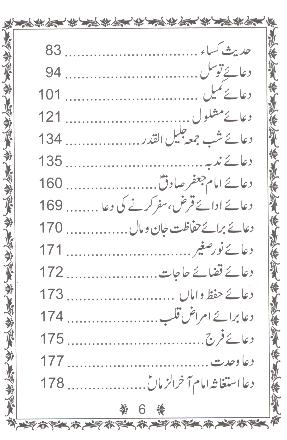 حدیث کساء ........................ 83
دعائے توسل ........................ 94
دعائے کمیل ........................ 101
دعائے مشلول ........................ 121
دعائے شب جمعہ جلیل القدر ........................ 134
دعائے ندبہ ........................ 135
دعائے امام جعفر صادقؑ ........................ 160
دعائے ادائے قرض، سفر کرنے کی دعا ........................ 169
دعائے برائے حفاظت جان و مال ........................ 170
دعائے نور صغیر ........................ 171
دعائے قضائے حاجات ........................ 172
دعائے حفظ و اماں ........................ 173
دعا برائے امراض قلب ........................ 174
دعائے فرج ........................ 175
دعا وحدت ........................ 177
دعا استغاثہ امام آخر الزماںؑ ........................ 178
6